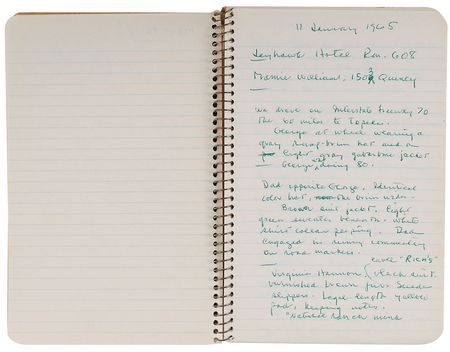 11 January 1965
Jayhawk Hotel Rm. 608
Mamie Williams, 1503 Quincy
We drove on Interstate freeway 70
the 60 miles to Topeka.
George at wheel wearing a
gray snap-brim hat and on
light gray gabardine jacket
George was doing 80.
Dad opposite George. Identical
color hat, the brim wider.
Brown suit jacket, light
green sweater beneath. White
shirt collar peeping. Dad
engaged in running commentary
on road markers.
"RICH'S"
Virginia Hannon black skirt,
burnished brown furs Suede
slippers. Legal length yellow
pad, keeping notes.
"Natural ranch mink